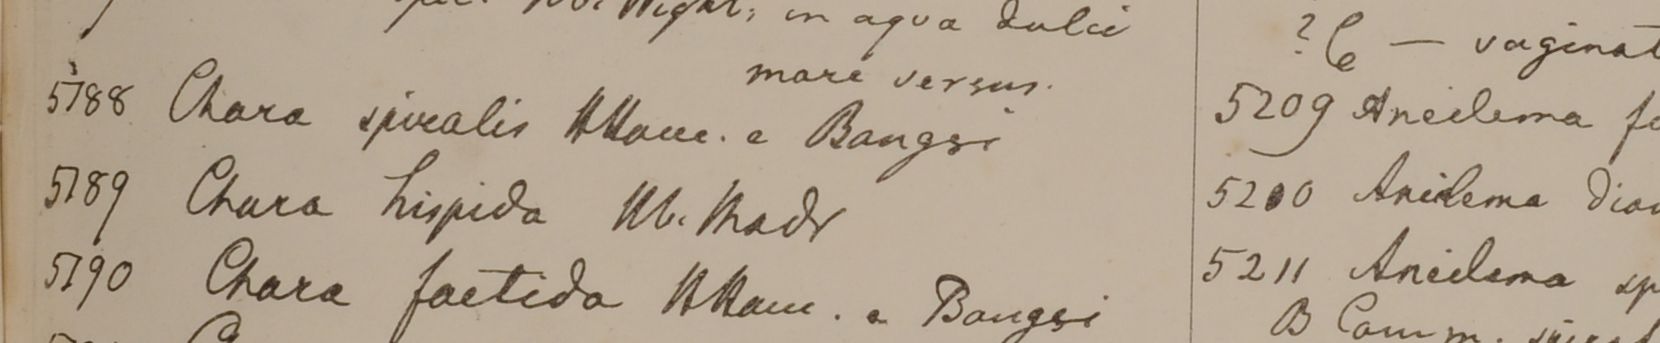 in aqua dulci
mare versus.
5188 Chara spiralis HHam. e Bangsi
5189 Chara hispida Hb. Madr
5190 Chara faetida HHam. e Bangsi
? C — vaginat
5209 Aneilema
5210 Aneilema
5211 Aneilema sp
B Comm.